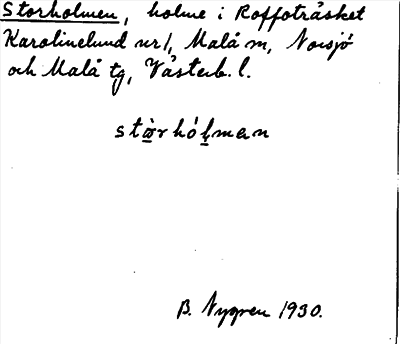 Storholmen, holme i Roffoträsket
Karolinelund nr 1, Malå m, Norsjö
och Malå tg, Västerb. l.
stòrhólmen
B. Nygren 1930.